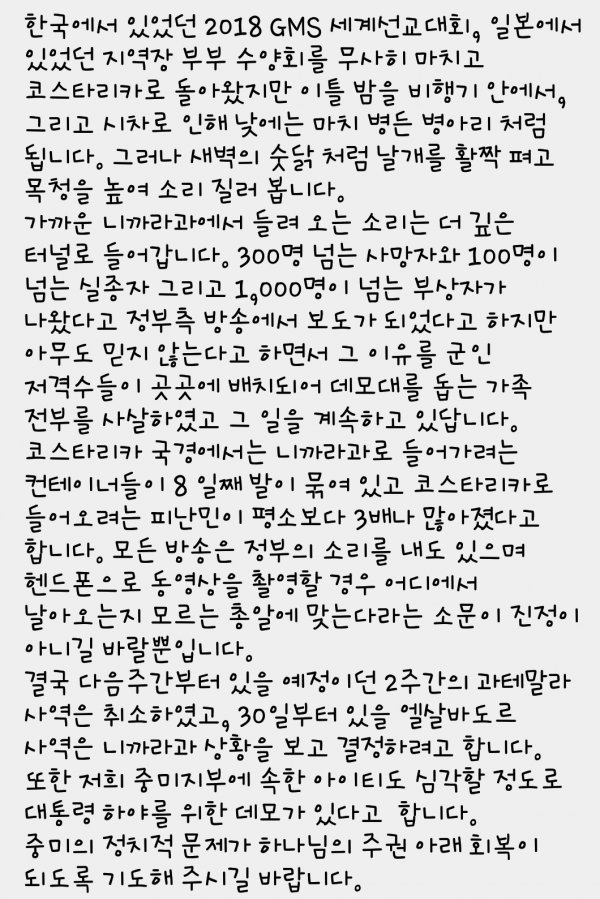 한국에서 있었던 2018 GMS 세계선교대회, 일본에서
있었던 지역장 부부 수양회를 무사히 마치고
코스타리카로 돌아왔지만 이틀 밤을 비행기 안에서,
그리고 시차로 인해 낮에는 마치 병든 병아리 처럼
됩니다. 그러나 새벽의 숫닭 처럼 날개를 활짝 펴고
목청을 높여 소리 질러 봅니다.
가까운 니까라과에서 들려 오는 소리는 더 깊은
터널로 들어갑니다. 300명 넘는 사망자와 100명이
넘는 실종자 그리고 1,000명이 넘는 부상자가
나왔다고 정부측 방송에서 보도가 되었다고 하지만
아무도 믿지 않는다고 하면서 그 이유를 군인
저격수들이 곳곳에 배치되어 데모대를 돕는 가족
전부를 사살하였고 그 일을 계속하고 있답니다.
코스타리카 국경에서는 니까라과로 들어가려는
컨테이너들이 8 일째 발이 묶여 있고 코스타리카로
들어오려는 피난민이 평소보다 3배나 많아졌다고
합니다. 모든 방송은 정부의 소리를 내도 있으며
헨드폰으로 동영상을 촬영할 경우 어디에서
날아오는지 모르는 총알에 맞는다라는 소문이 진정이
아니길 바랄뿐입니다.
결국 다음주간부터 있을 예정이던 2주간의 과테말라
사역은 취소하였고, 30일부터 있을 엘살바도르
사역은 니까라과 상황을 보고 결정하려고 합니다.
또한 저희 중미지부에 속한 아이티도 심각할 정도로
대통령 하야를 위한 데모가 있다고 합니다.
중미의 정치적 문제가 하나님의 주권 아래 회복이
되도록 기도해 주시길 바랍니다.